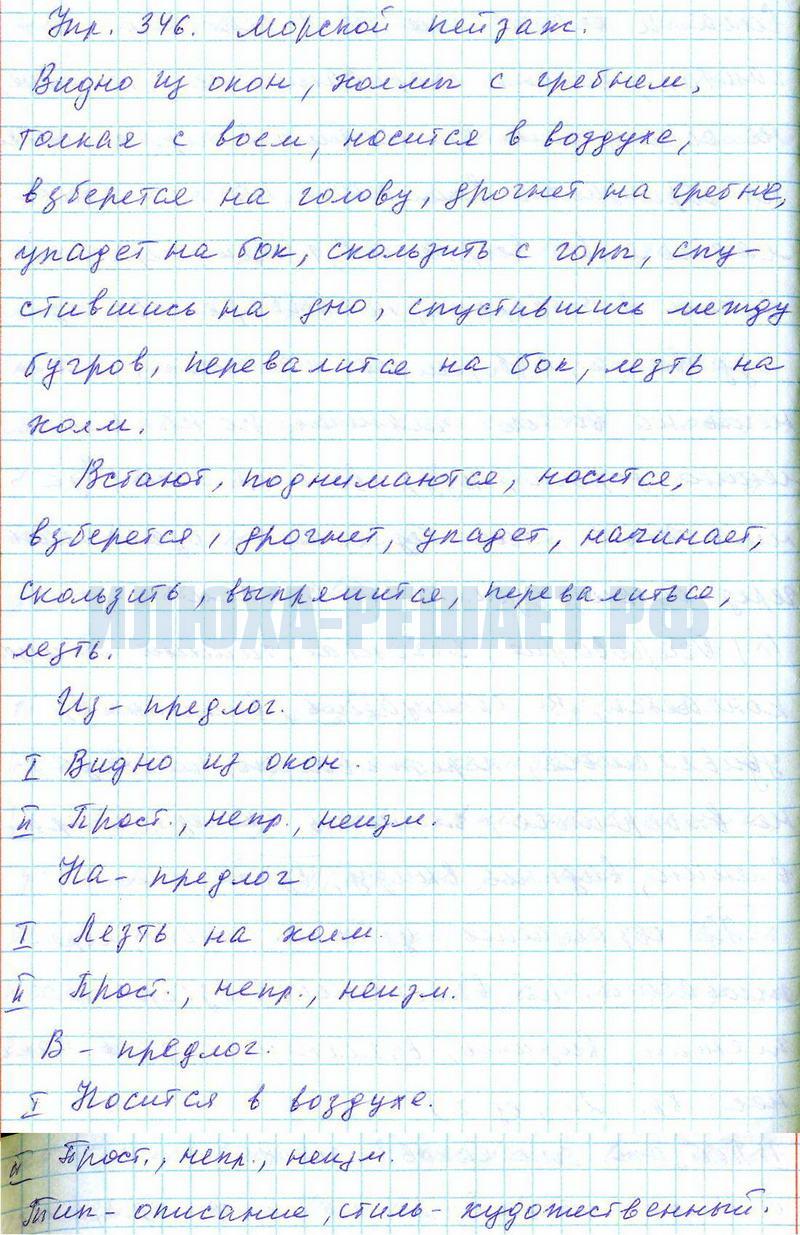 Упр. 346. Морской пейзаж.
Видно из окон, холмы с гребнем,
толкая с воем, носится в воздухе,
взберется на голову, дрогнет на гребне,
упадет на бок, скользить с горы, спу-
стившись на дно, спустившись между
бугров, перевалится на бок, лезть на
холм.
Встают, поднимаются, носится,
взберется, дрогнет, упадет, начинает,
скользить, выпрямится, перевалиться,
ИЛЮХА-РЕШАЕТ.РФ
лезть.
Из - предлог.
I Видно из окон.
II Прост., непр., неизм.
На - предлог
I Лезть на холм.
II Прост., непр., неизм.
В - предлог.
I Носится в воздухе.
II Прост., непр., неизм.
Тип - описание, стиль - художественный.